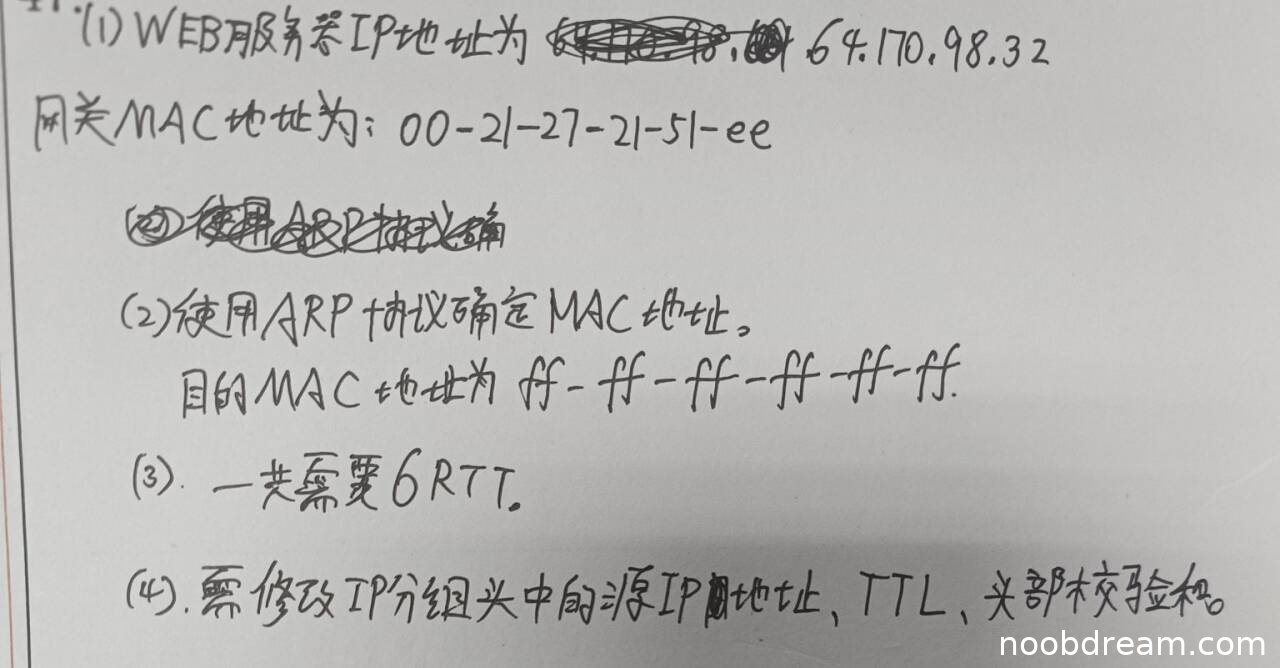 (1) WEB服务器IP地址为 64.170.98.32
网关MAC地址为: 00-21-27-21-51-ee
(2)使用ARP协议确定MAC地址。
目的MAC地址为 ff-ff-ff-ff-ff-ff.
(3). 一共需要6RTT。
(4). 需修改IP分组头中的源IP地址、TTL、头部校验和。
noobdream.com